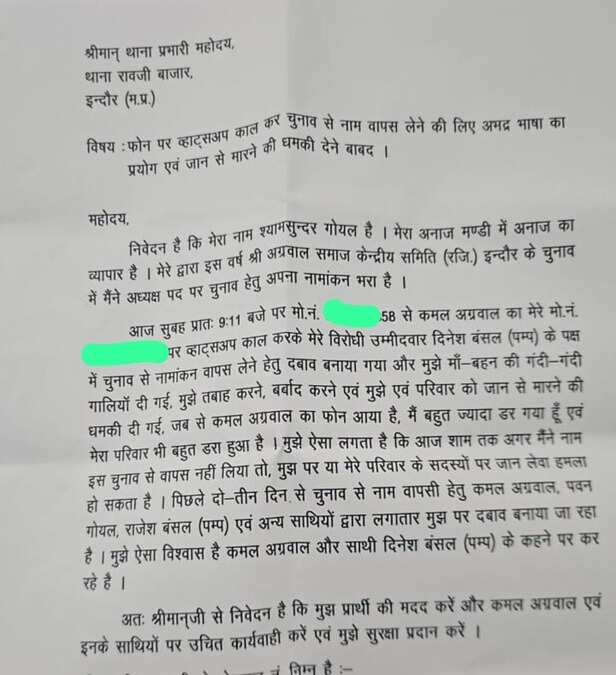 श्रीमान् थाना प्रभारी महोदय,
थाना रावजी बाजार,
इन्दौर (म.प्र.)
विषय : फोन पर व्हाट्सअप काल कर चुनाव से नाम वापस लेने की लिए अमद्र भाषा का
प्रयोग एवं जान से मारने की धमकी देने बाबद ।
महोदय,
निवेदन है कि मेरा नाम श्यामसुन्दर गोयल है । मेरा अनाज मण्डी में अनाज का
व्यापार है । मेरे द्वारा इस वर्ष श्री अग्रवाल समाज केन्द्रीय समिति (रजि.) इन्दौर के चुनाव
में मैंने अध्यक्ष पद पर चुनाव हेतु अपना नामांकन भरा है ।
आज सुबह प्रातः 9:11 बजे पर मो.नं. 58 से कमल अग्रवाल का मेरे मो.नं.
पर व्हाट्सअप काल करके मेरे विरोधी उम्मीदवार दिनेश बंसल (पम्प) के पक्ष
में चुनाव से नामांकन वापस लेने हेतु दबाव बनाया गया और मुझे माँ-बहन की गंदी-गंदी
गालियाँ दी गई, मुझे तबाह करने, बर्वाद करने एवं मुझे एवं परिवार को जान से मारने की
धमकी दी गई, जब से कमल अग्रवाल का फोन आया है, मैं बहुत ज्यादा डर गया हूँ एवं
मेरा परिवार भी बहुत डरा हुआ है । मुझे ऐसा लगता है कि आज शाम तक अगर मैंने नाम
इस चुनाव से वापस नहीं लिया तो, मुझ पर या मेरे परिवार के सदस्यों पर जान लेवा हमला
हो सकता है । पिछले दो-तीन दिन से चुनाव से नाम वापसी हेतु कमल अग्रवाल, पवन
गोयल, राजेश बंसल (पम्प) एवं अन्य साथियों द्वारा लगातार मुझ पर दबाव बनाया जा रहा
है । मुझे ऐसा विश्वास है कमल अग्रवाल और साथी दिनेश बंसल (पम्प) के कहने पर कर
रहे है ।
अतः श्रीमान्जी से निवेदन है कि मुझ प्रार्थी की मदद करें और कमल अग्रवाल एवं
इनके साथियों पर उचित कार्यवाही करें एवं मुझे सुरक्षा प्रदान करें ।
निम्न है :–